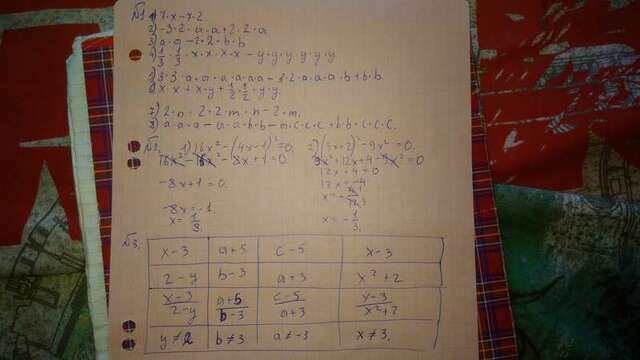 №1 1) 7·x-7·2
2) -3·2·a·a+2·2·a
3) a·a-2·2·b·b
4) 1/3·1/3·x·x·x·x-y·y·y·y·y·y.
5) 3·3·a·a·a·a·a·a-2·2·a·a·a·b+b·b
6) x·x+x·y+1/2·1/2·y·y.
7) 2·n-2·2·m·n-2·m.
8) a·a·a-a·a·b·b-m·c·c·c+b·b·c·c·c.
№2. 1) 16x²-(4x-1)²=0, 2) (3x+2)²-9x²=0.
16x²-16x²-8x+1=0 9x²+12x+4-9x²=0
12x+4=0
-8x+1=0. 12x=-4
x=-4/12
-8x=-1.
x=1/8 x=-1/3.
№3.
x-3 a+5 c-5 x-3
2-y b-3 a+3 x²+2
x-3/2-y a+5/b-3 c-5/a+3 x-3/x²+2
y≠2 b≠3 a≠-3 x≠3.